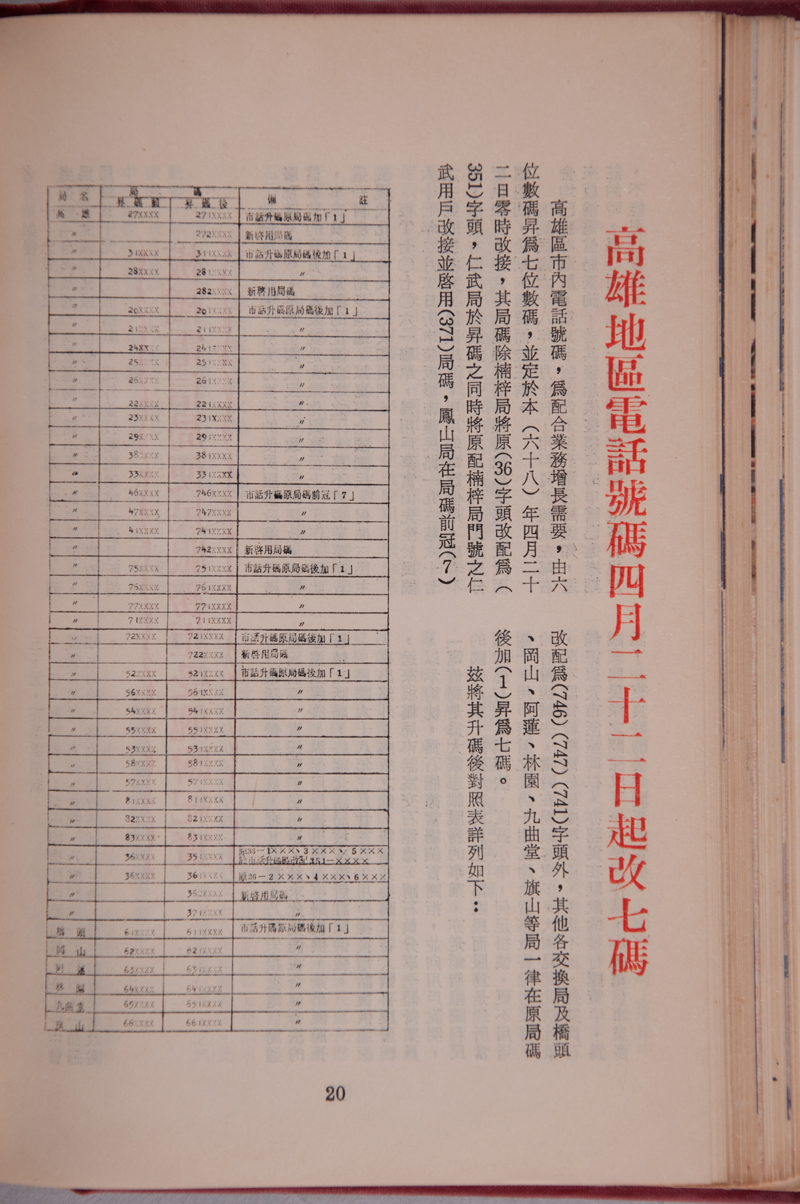 高雄地區電話號碼四月二十二日起改七碼
高雄區市內電話號碼，爲配合業務增長需要，由六
位數碼昇爲七位數碼，並定於本（六十八）年四月二十
二日零時改接，其局碼除楠梓局將原(36)字頭改配爲（
351)字頭，仁武局於昇碼之同時將原配楠梓局門號之仁
武用戶改接並啓用(371)局碼，鳳山局在局碼前冠(7)
改配爲(746)(747)(741)字頭外，其他各交換局及橋頭
、岡山、阿蓮、林園、九曲堂、旗山等局一律在原局碼
後加(1)昇爲七碼。
茲將其升碼後對照表詳列如下：
局名 局碼 備註
昇碼前 昇碼後
高雄 27XXXX 271XXXX 市話升碼原局碼加「1」
〃 272XXXX 新啓用局碼
〃 31XXXX 311XXXX 市話升碼原局碼後加「1」
〃 28XXXX 281XXXX 〃
〃 282XXXX 新啓用局碼
〃 20XXXX 201XXXX 市話升碼原局碼後加「1」
〃 21XXXX 211XXXX 〃
〃 24XXXX 241XXXX 〃
〃 25XXXX 251XXXX 〃
〃 26XXXX 261XXXX 〃
〃 22XXXX 221XXXX 〃
〃 23XXXX 231XXXX 〃
〃 29XXXX 291XXXX 〃
〃 38XXXX 381XXXX 〃
〃 33XXXX 331XXXX 〃
〃 46XXXX 746XXXX 市話升碼原局碼前冠「7」
〃 47XXXX 747XXXX 〃
〃 41XXXX 741XXXX 〃
〃 742XXXX 新啓用局碼
〃 75XXXX 751XXXX 市話升碼原局碼後加「1」
〃 76XXXX 761XXXX 〃
〃 77XXXX 771XXXX 〃
〃 71XXXX 711XXXX 〃
〃 72XXXX 721XXXX 市話升碼原局碼後加「1」
〃 722XXXX 新啓用局碼
〃 52XXXX 521XXXX 市話升碼原局碼後加「1」
〃 56XXXX 561XXXX 〃
〃 54XXXX 541XXXX 〃
〃 55XXXX 551XXXX 〃
〃 53XXXX 531XXXX 〃
〃 58XXXX 581XXXX 〃
〃 57XXXX 571XXXX 〃
〃 81XXXX 811XXXX 〃
〃 82XXXX 821XXXX 〃
〃 83XXXX 831XXXX 〃
〃 36XXXX 351XXXX 原36—1XXX、3XXX、5XXX
於市話升碼後改配351—XXXX
〃 36XXXX 361XXXX 原36—2XXX、4XXX、6XXX
新啓用局碼
〃 371XXXX 〃
橋頭 61XXXX 611XXXX 市話升碼原局碼後加「1」
岡山 62XXXX 621XXXX 〃
阿蓮 63XXXX 631XXXX 〃
林園 64XXXX 641XXXX 〃
九曲堂 65XXXX 651XXXX 〃
旗山 66XXXX 661XXXX 〃
20